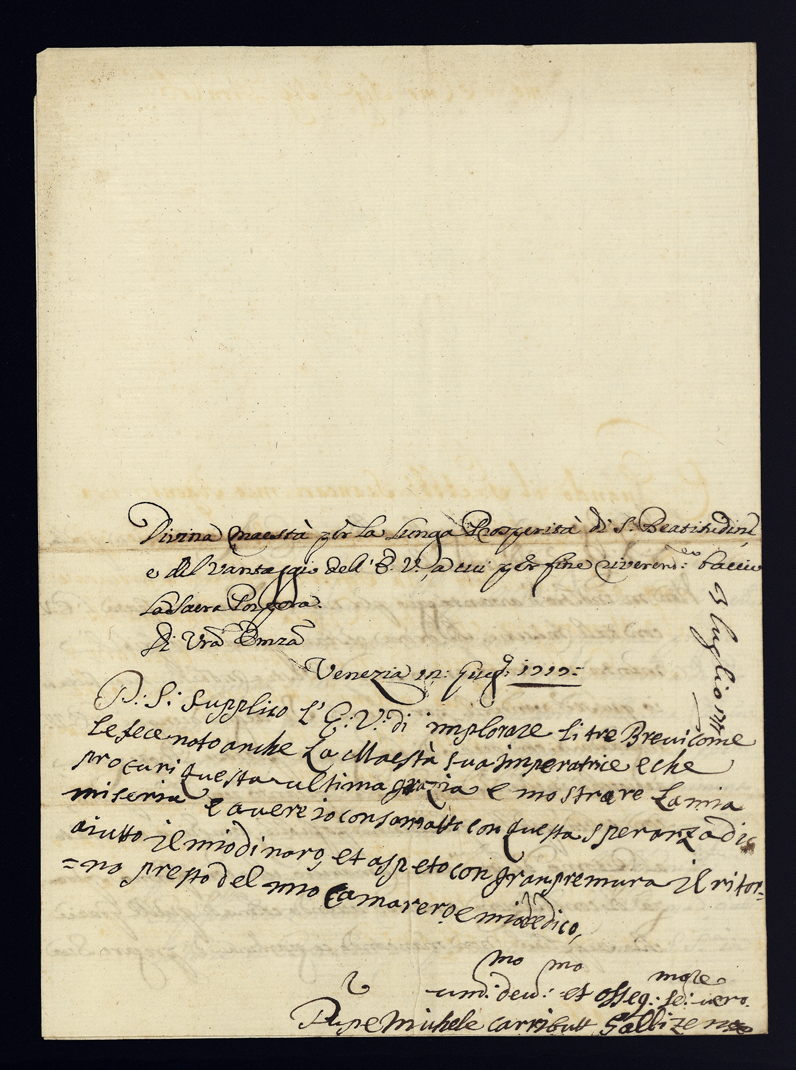 Divina Maestà per la lunga Prosperità di S. Beatitudine,
e del vantaggio dell' E. V., a cui per fine riverend:te baccio
La Sacra Porpora.
Di Vrã Emzã
Venezia 12: Giug: 1717:
3 luglio
P: S: Supplico l' E: V: di implorare li tre Brevi come
le fece noto anche La Maestà sua imperatrice e che
procuri questa ultima grazia e mostrare La mia
miseria e avere io consomatto con questa speranza di
aiutto il mio dinaro, et aspeto con gran premura il ritor=
=no presto del mio Camarero, e mi dedico,
um: dev:mo et osseq:mo se: vero.
Michele